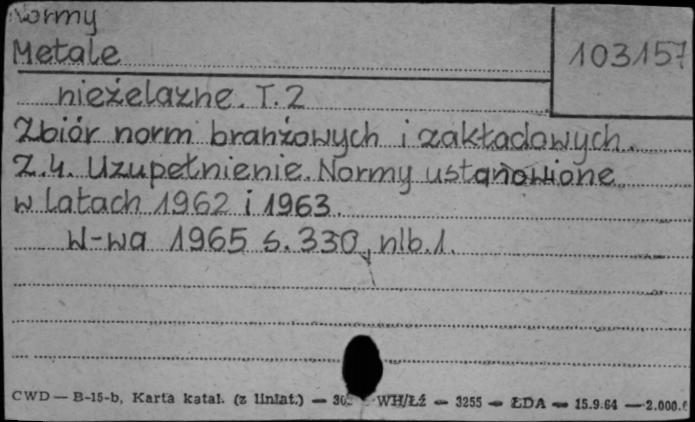 Normy
Metale
103157
nieżelazne. T. 2
Zbiór norm branżowych i zakładowych.
Z. 4. Uzupełnienie. Normy ustanowione
w latach 1962 i 1963.
W-wa 1965 s. 330, nlb. 1.
CWD — B-15-b, Karta katal. (z liniat.) — WH/Łż — 3255 — ŁDA — 15.9.64 — 2.000.